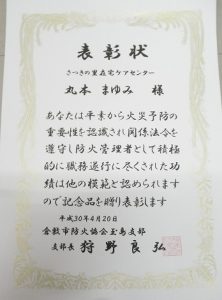 表彰状
さつきの里在宅ケアセンター
丸本 まゆみ 様
あなたは平素から火災予防の
重要性を認識され関係法令を
遵守し防火管理者として積極
的に職務遂行に尽くされた功
績は他の模範と認められます
ので記念品を贈り表彰します
平成30年4月20日
倉敷市防火協会玉島支部
支部長 狩野良弘